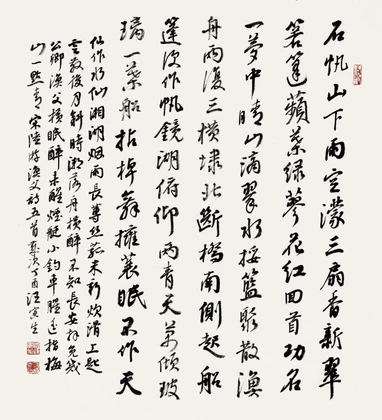 石帆山下雨空濛三扇香新翠
箬篷蘋葉綠蓼花紅回首功名
一夢中晴山滴翠水挼籃聚散漁
舟兩復三橫埭北斷橋南側起船
篷便作帆鏡湖俯仰兩青天萬頃玻
璃一葉船拈棹舞擁蓑眠不作天
仙作水仙湘湖烟雨長蓴絲菰米新炊滑上匙
雲散後月斜時潮落舟橫醉不知長安拜免幾
公卿漁父橫眠醉未醒煙艇小釣車腥遙指梅
山一點青 宋陸游漁父詞五首 歲次丁酉汪寅生